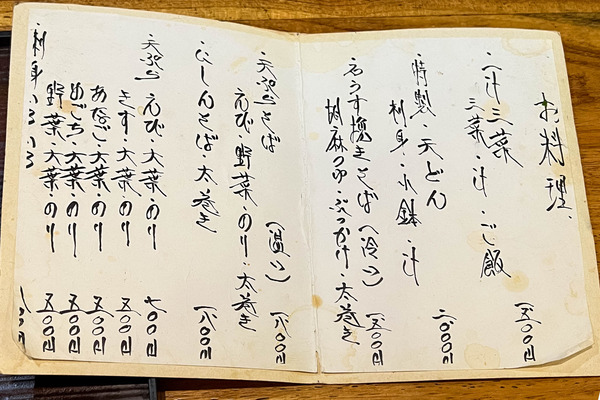 お料理
・一汁三菜
三菜・汁・ご飯
一五〇〇円
・特製・天どん
刺身・小鉢・汁
二〇〇〇円
・石うす挽きそば(冷い)
胡麻つゆ・ぶっかけ・太巻き
一五〇〇円
・天ぷらそば(温い)
えび・野菜・のり・太巻き
一八〇〇円
・にしんそば・太巻き
一八〇〇円
・天ぷら えび・大葉・のり 七〇〇円
きす・大葉・のり 五〇〇円
あなご・大葉・のり 五〇〇円
めごち・大葉・のり 五〇〇円
野菜・大葉・のり 五〇〇円
・刺身いろいろ